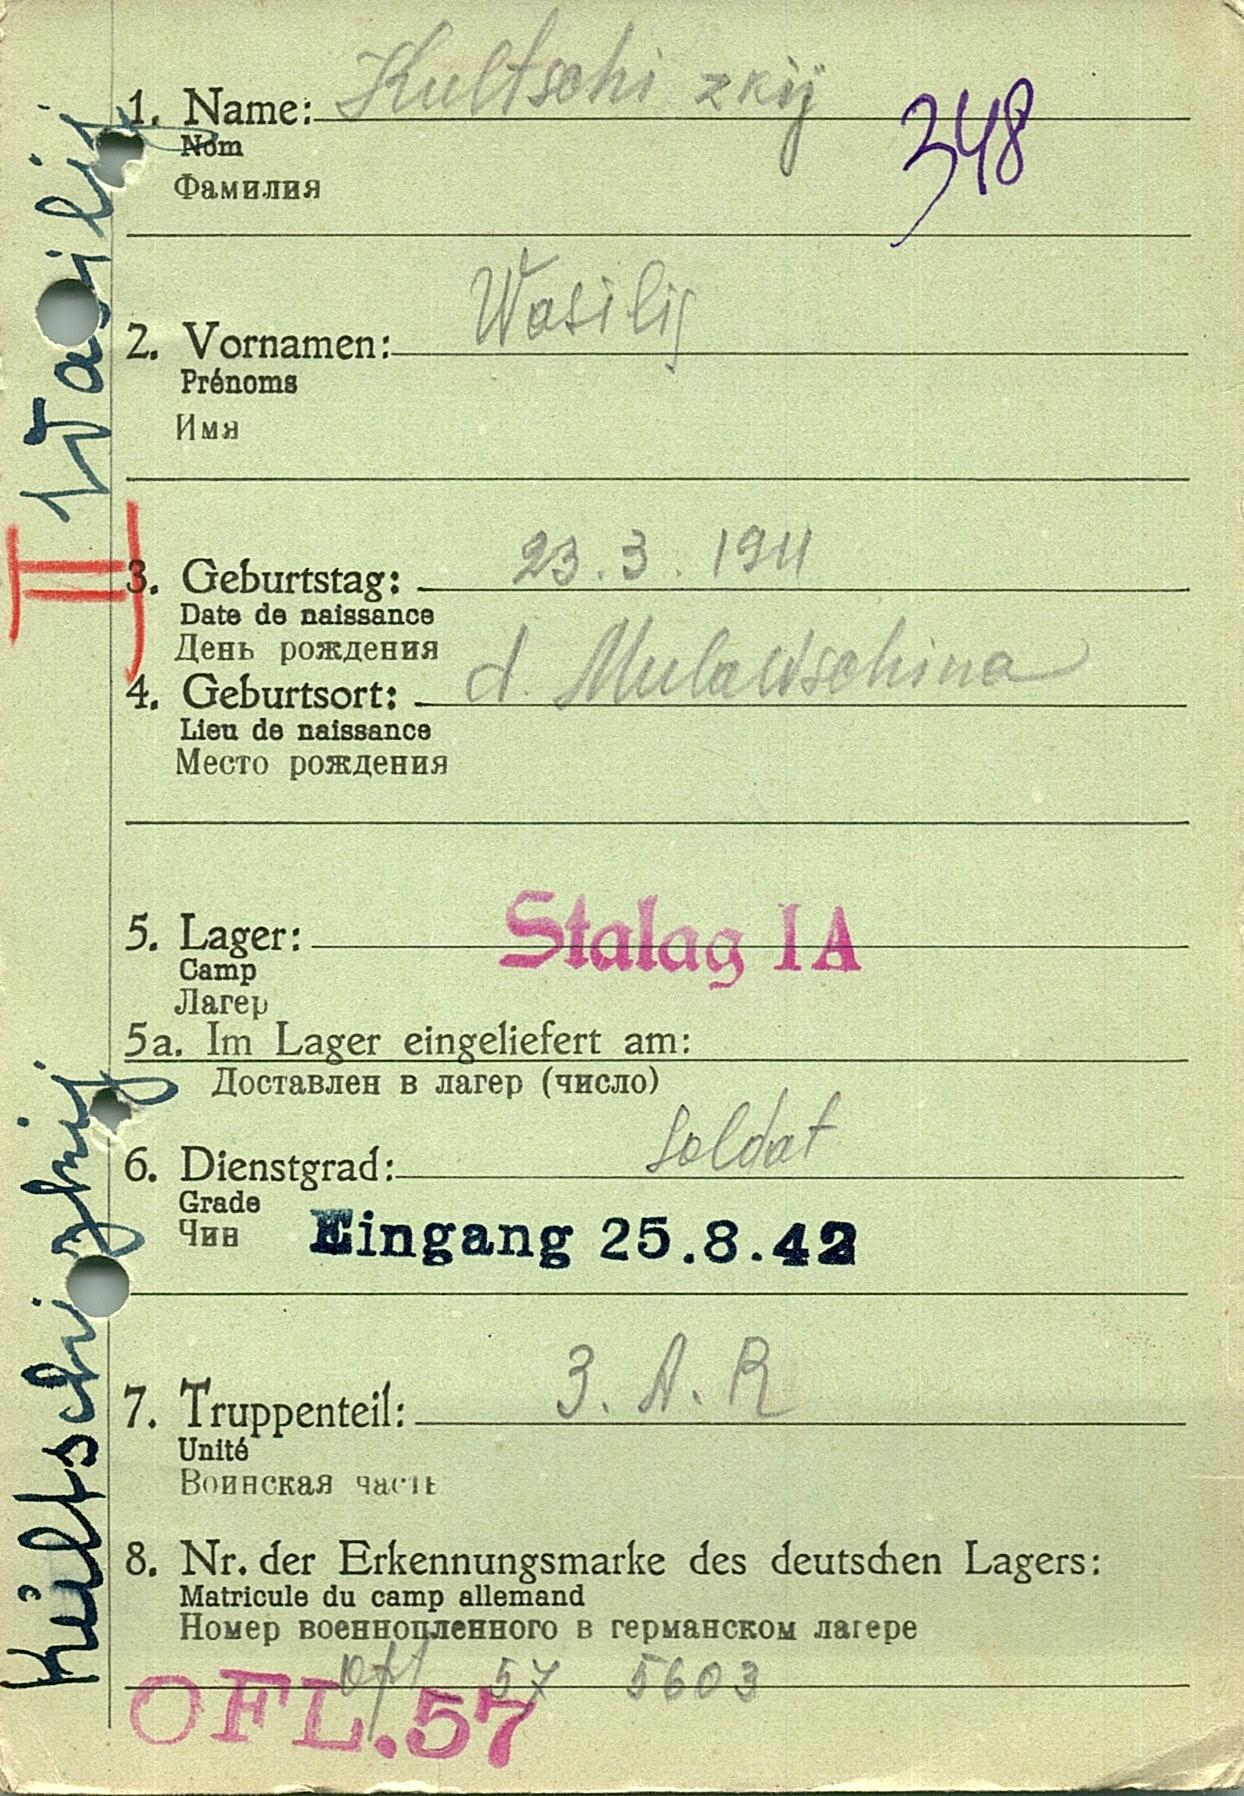 1. Name: Kultschi zkij
348
Nom
Фамилия
2. Vornamen: Wasilij
Prénoms
Имя
3. Geburtstag: 23.3.1911
Date de naissance
День рождения
4. Geburtsort: d. Mulawtschina
Lieu de naissance
Место рождения
5. Lager: Stalag IA
Camp
Лагер
5a. Im Lager eingeliefert am:
Доставлен в лагер (число)
6. Dienstgrad: Soldat
Grade
Чин
Eingang 25.8.42
7. Truppenteil: 3. A. R
Unité
Воинская часть
8. Nr. der Erkennungsmarke des deutschen Lagers:
Matricule du camp allemand
Номер военнопленного в германском лагере
Ofl 57 5603
OFL.57
Kultschizkij Wasilij
II